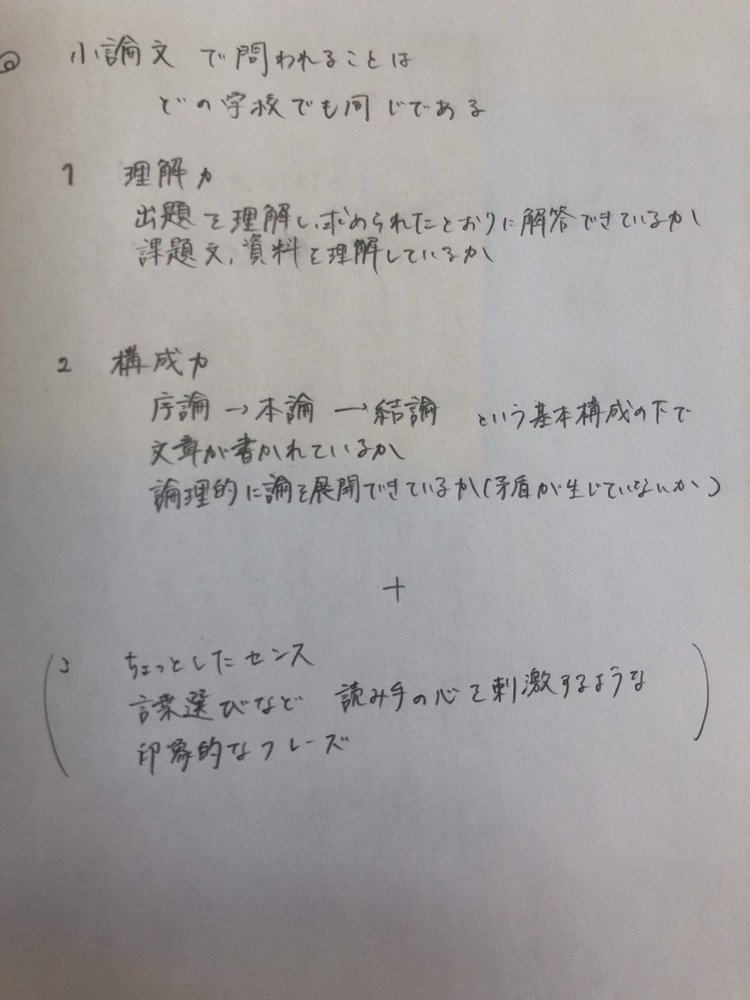 ◎ 小論文で問われることは
どの学校でも同じである
1 理解力
出題を理解し、求められたとおりに解答できているか
課題文、資料を理解しているか
2 構成力
序論→本論→結論 という基本構成の下で
文章が書かれているか
論理的に論を展開できているか(矛盾が生じていないか)
+
(3 ちょっとしたセンス
言葉選びなど 読み手の心を刺激するような
印象的なフレーズ)